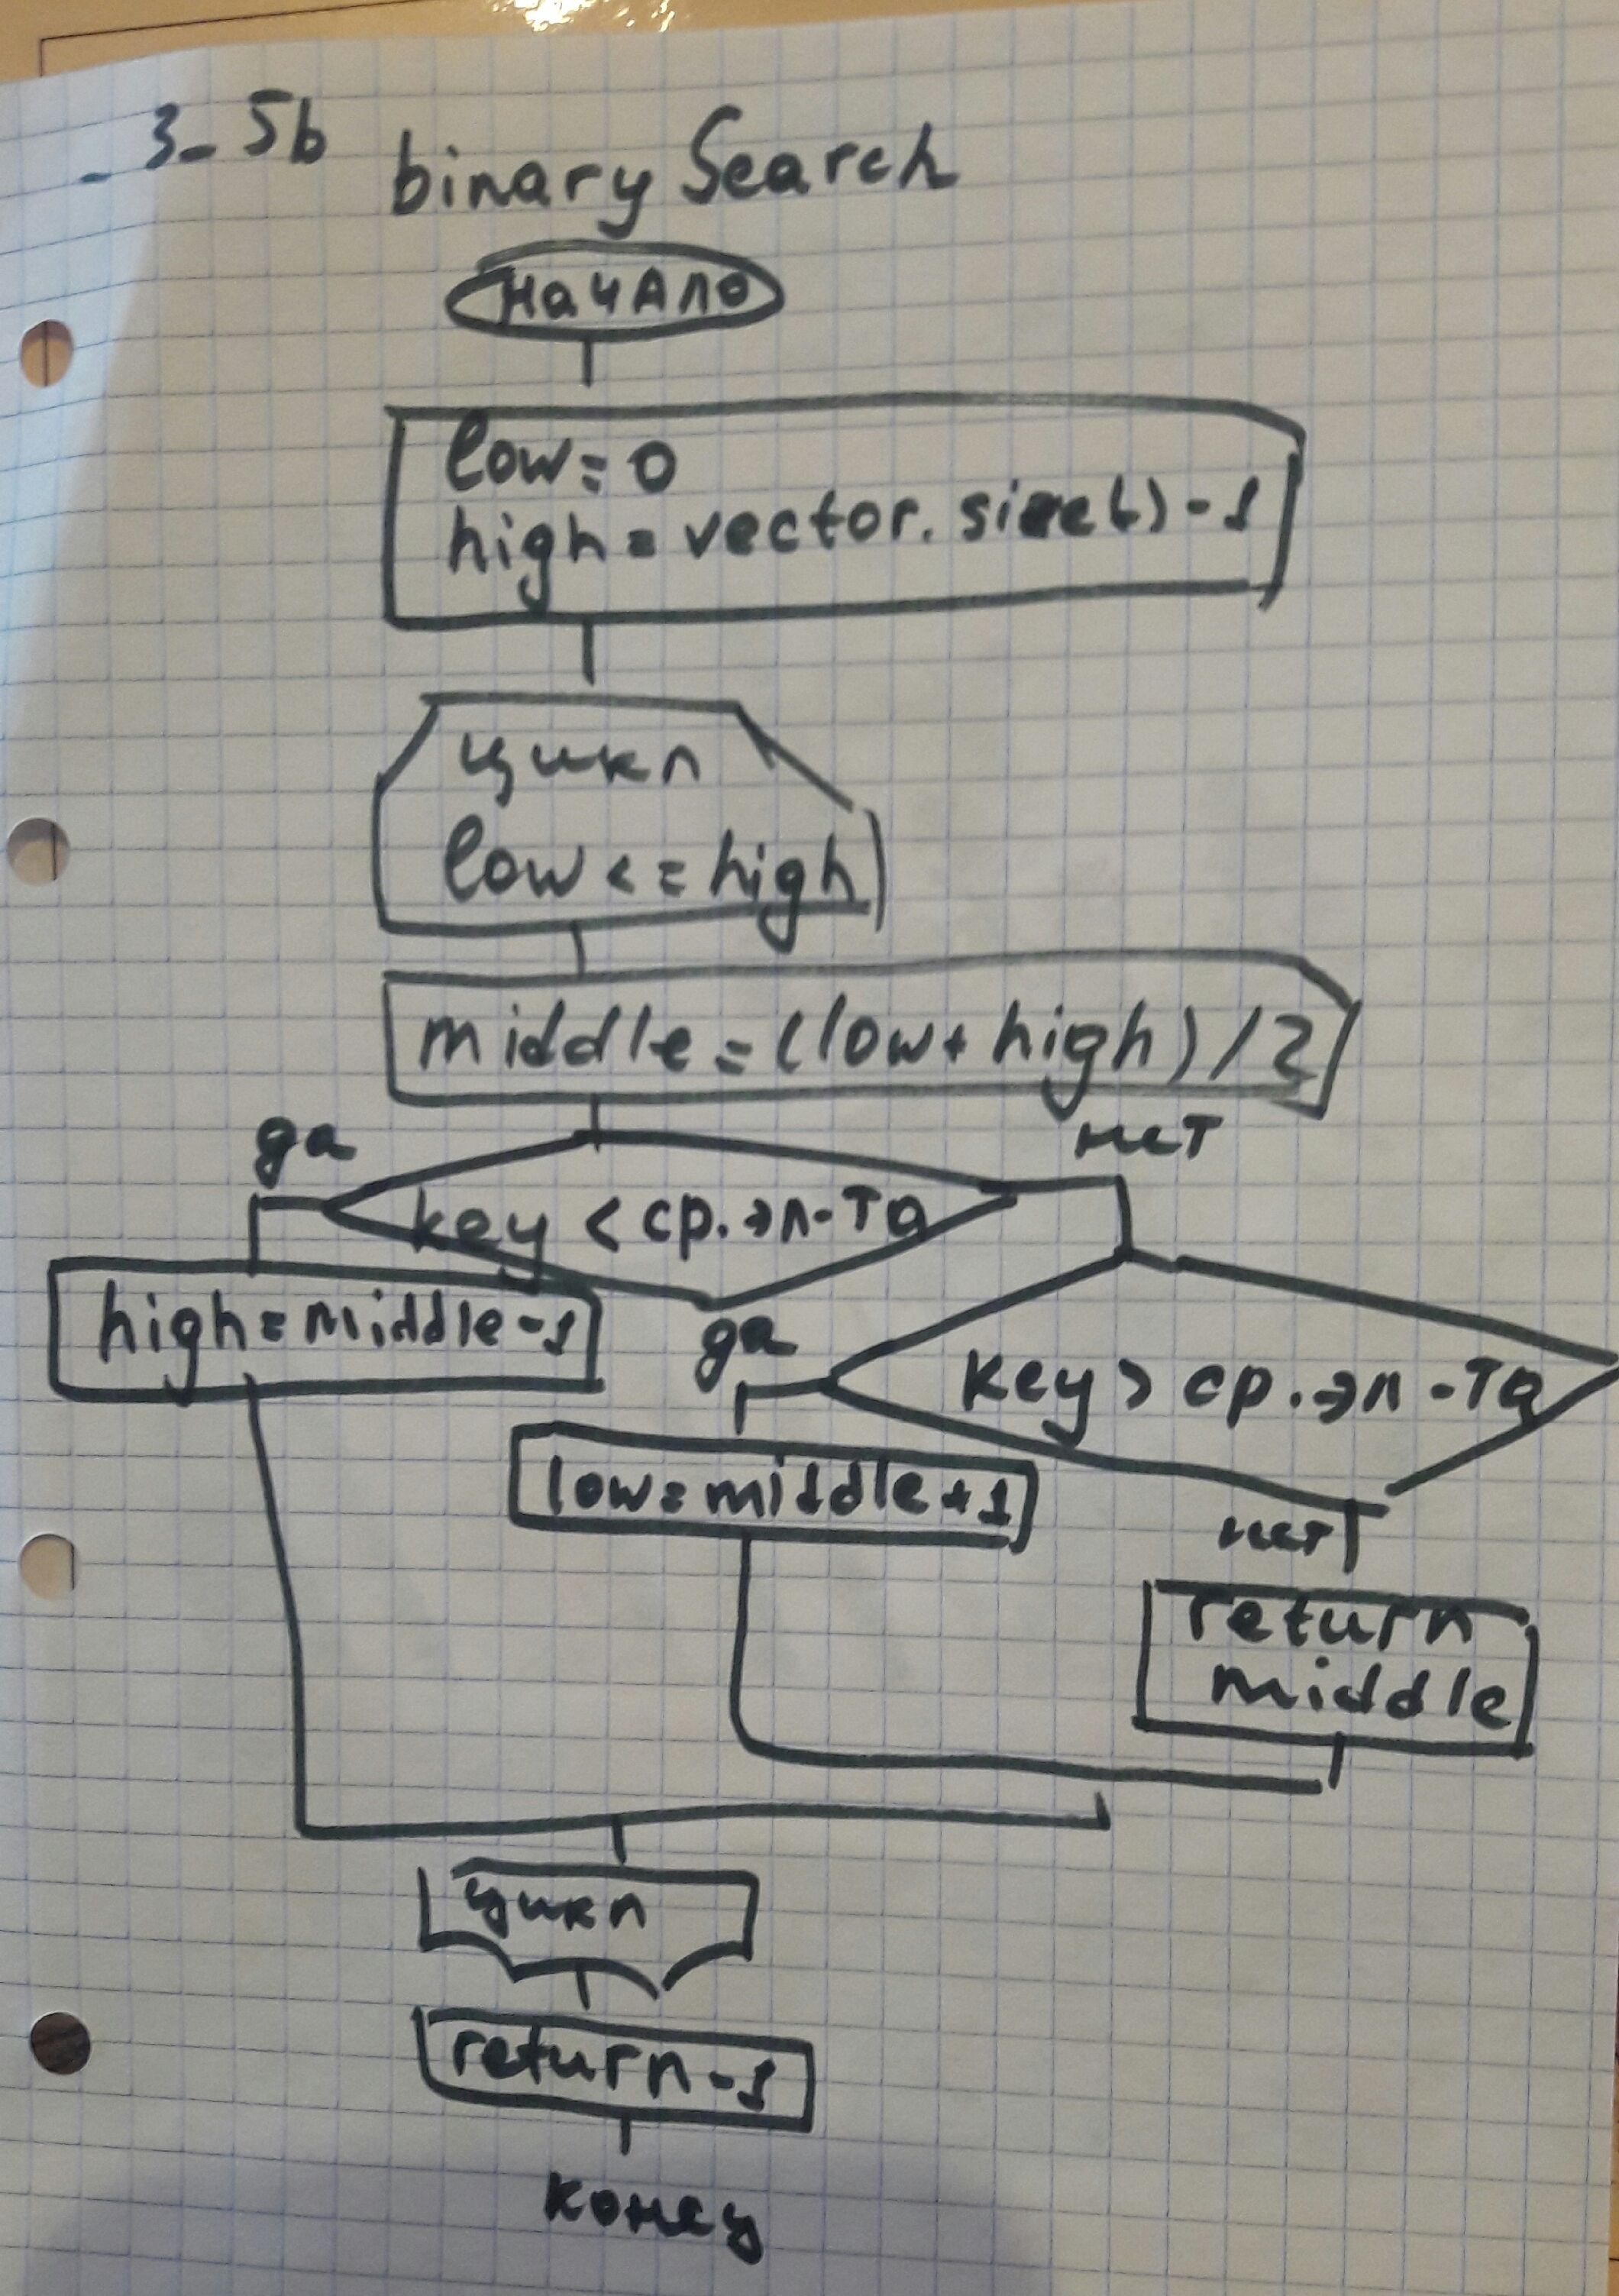 _3_5b binarySearch
начало
low=0
high=vector.size()-1
цикл
low<=high
middle=(low+high)/2
да
нет
key<ср.эл-та
high=middle-1
да
key>ср.эл-та
low=middle+1
нет
return
middle
цикл
return-1
конец